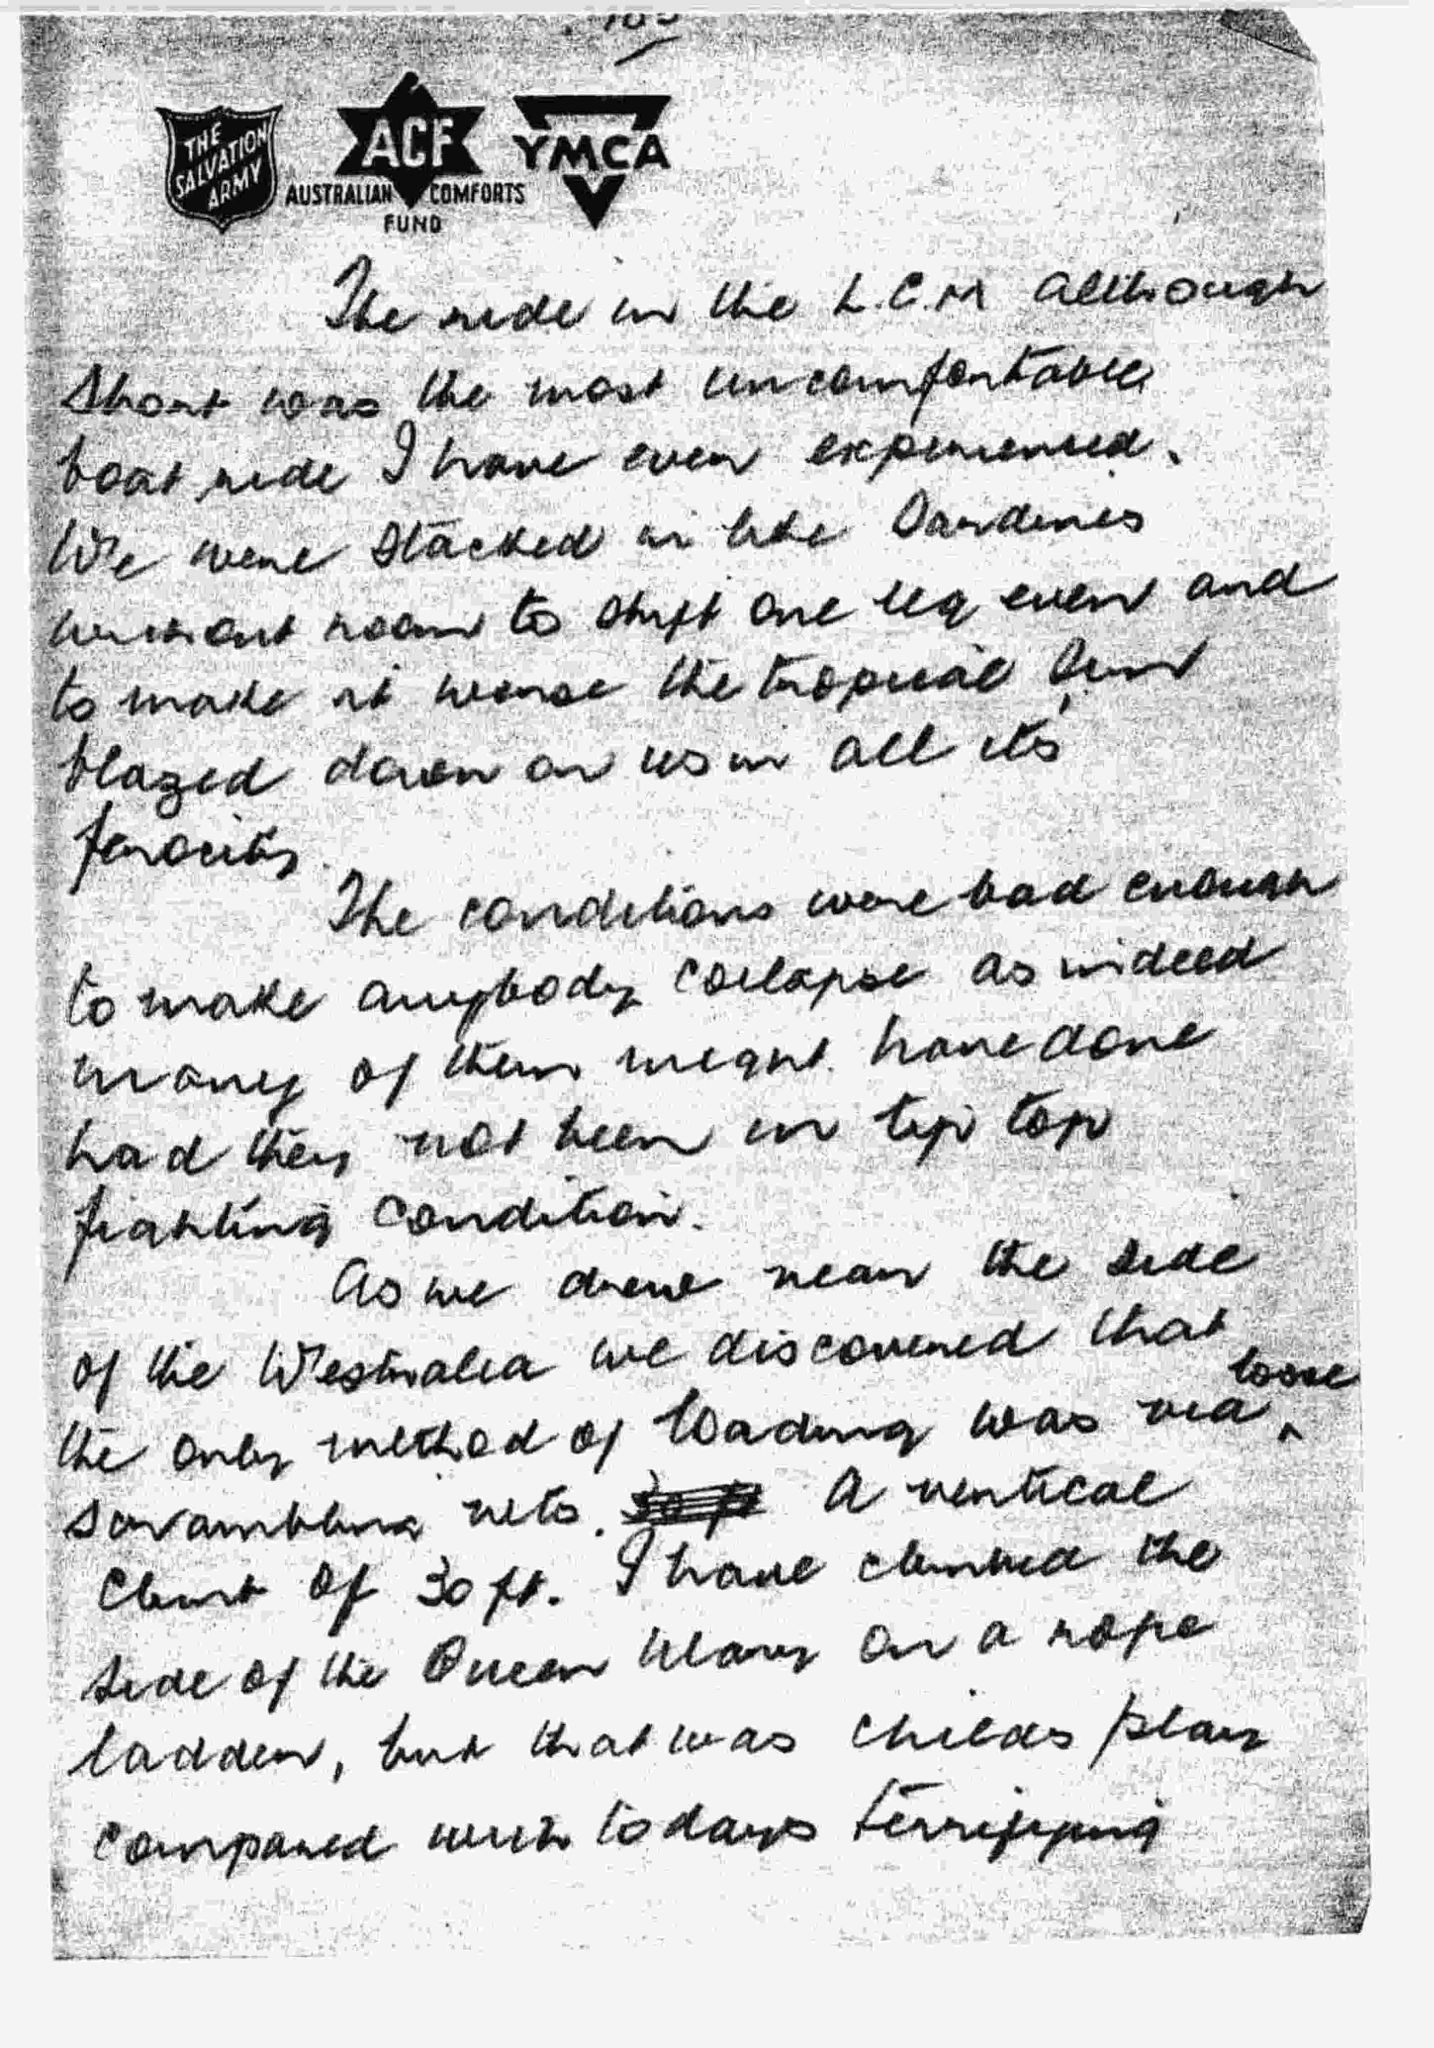 THE
SALVATION
ARMY
ACF
AUSTRALIAN COMFORTS
FUND
YMCA
The ride in the L.C.M although
short was the most uncomfortable
boat ride I have ever experienced.
We were stacked in like Sardines
without room to shift one leg even and
to make it worse the tropical sun
blazed down on us in all its
ferocity.
The conditions were bad enough
to make anybody collapse as indeed
many of them might have done
had they not been in tip top
fighting condition.
As we drew near the side
of the Westralia we discovered that
the only method of loading was via loose
scrambling nets. A vertical
climb of 30 ft. I have climbed the
side of the Queen Mary on a rope
ladder, but that was childs play
compared with todays terrifying